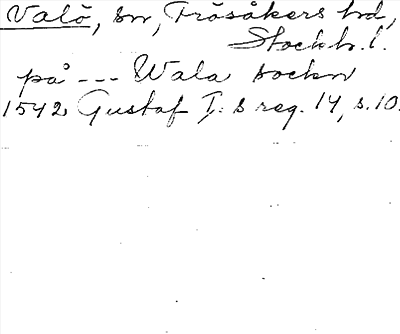 Valö, sn, Frösåkers hd,
Stockh. l.
på --- Wala sockn
1542 Gustaf I: s reg. 14, s. 10.